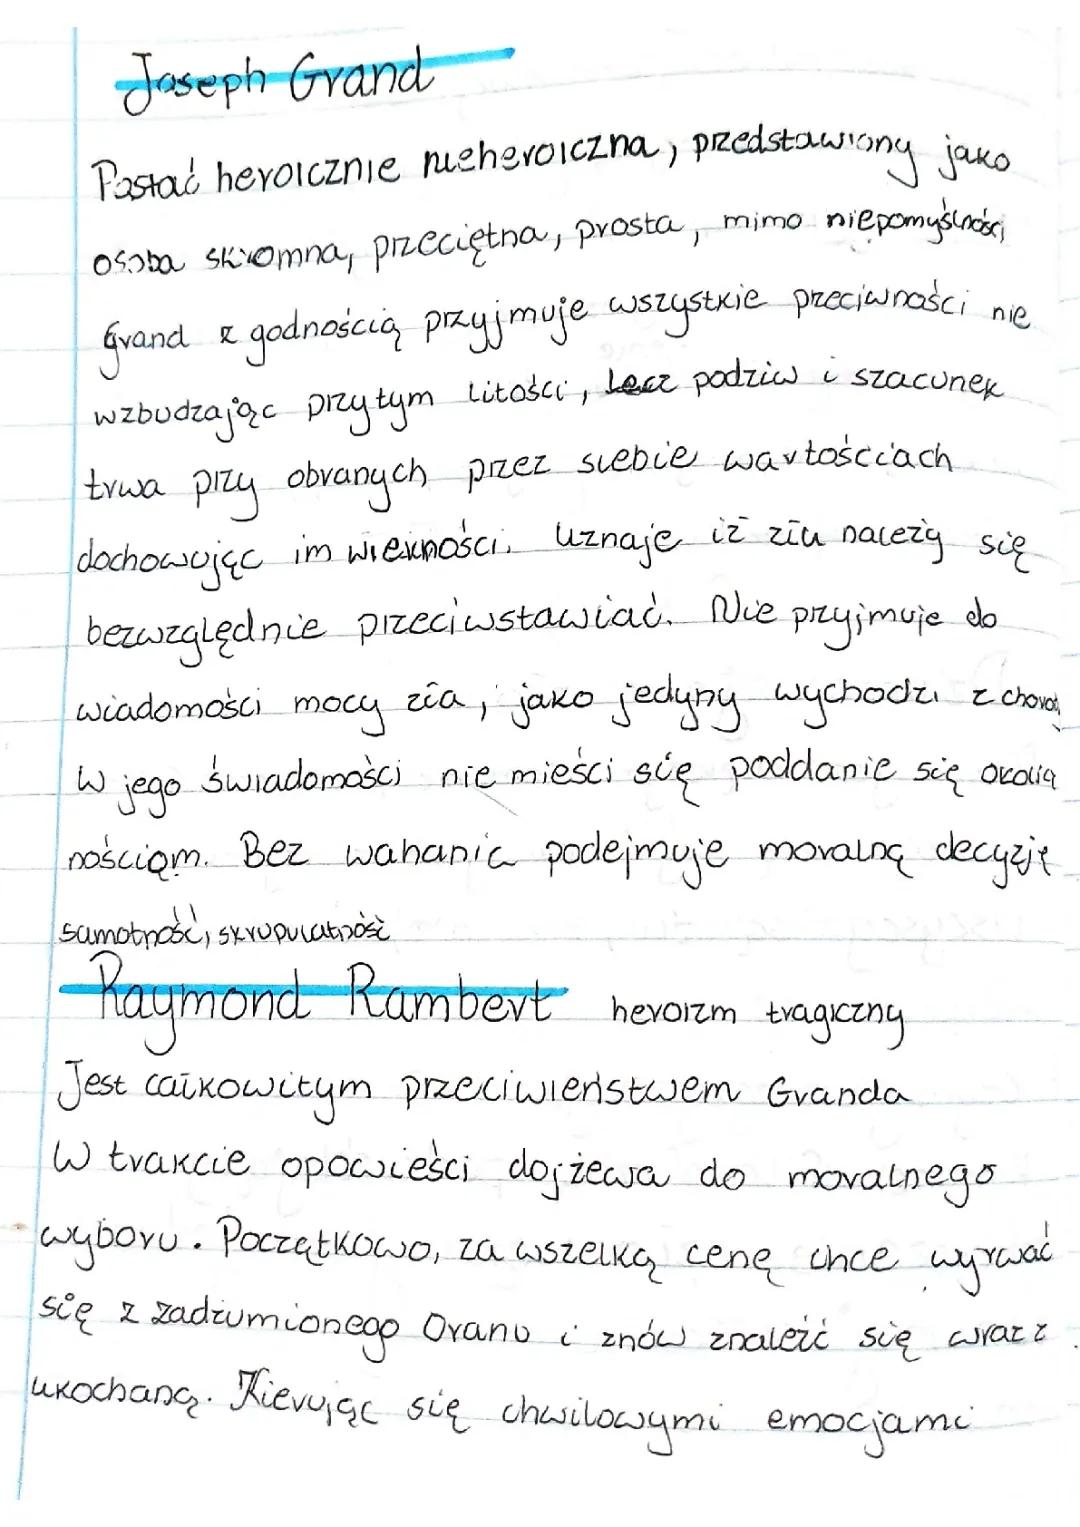 Joseph Grand
Postać heroicznie nieheroiczna, przedstawiony jako
osoba skromna, przeciętna, prosta, mimo niepomyślności
Grand z godnością przyjmuje wszystkie przeciwności nie
wzbudzając przytym litości, lecz podziw i szacunek
trwa przy obranych przez siebie wartościach
dochowując im wierności. Uznaje iż złu należy się
bezwzględnie przeciwstawiać. Nie przyjmuje do
wiadomości mocy zła, jako jedyny wychodzi z
W jego świadomości nie mieści się poddanie się okolicz
nościom. Bez wahania podejmuje moralną decyzję
samotność, skrupulatność
Raymond Rambert heroizm tragiczny
Jest całkowitym przeciwieństwem Granda
W trakcie opowieści dojżewa do moralnego
wyboru. Początkowo, za wszelką cenę chce wyrwać
się z zadżumionego Oranu i znów znaleźć się wraz z
ukochaną. Kierując się chwilowymi emocjami